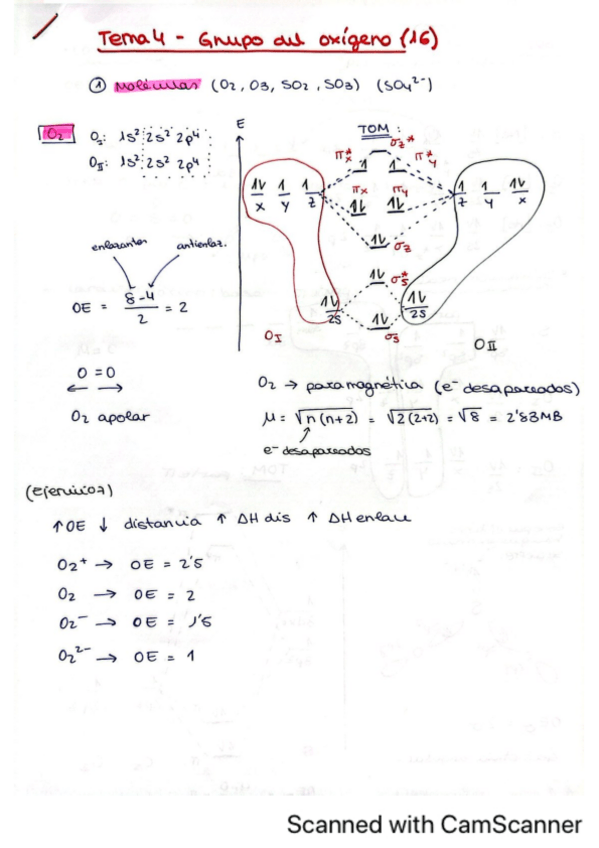 Tema 4 - Grupo del oxígeno (16)
① Moléculas (O2, O3, SO2, SO3) (SO4²⁻)
O2
O_I: 1s² 2s² 2p⁴
O_II: 1s² 2s² 2p⁴
E
TOM:
σz*
πx* π*y
πx πy
x y z
z y x
σz
σs*
2s 2s
σs
O_I
O II
enlazantes antienlaz.
OE = 8-4 / 2 = 2
O=O
O2 apolar
O2 → paramagnética (e⁻ desapareados)
μ = √n(n+2) = √2(2+2) = √8 = 2'83MB
e⁻ desapareados
(Ejercicios)
↑OE ↓ distancia ↑ ΔH dis ↑ ΔH enlace
O2⁺ → OE = 2'5
O2 → OE = 2
O2⁻ → OE = 1'5
O2²⁻ → OE = 1
Scanned with CamScanner